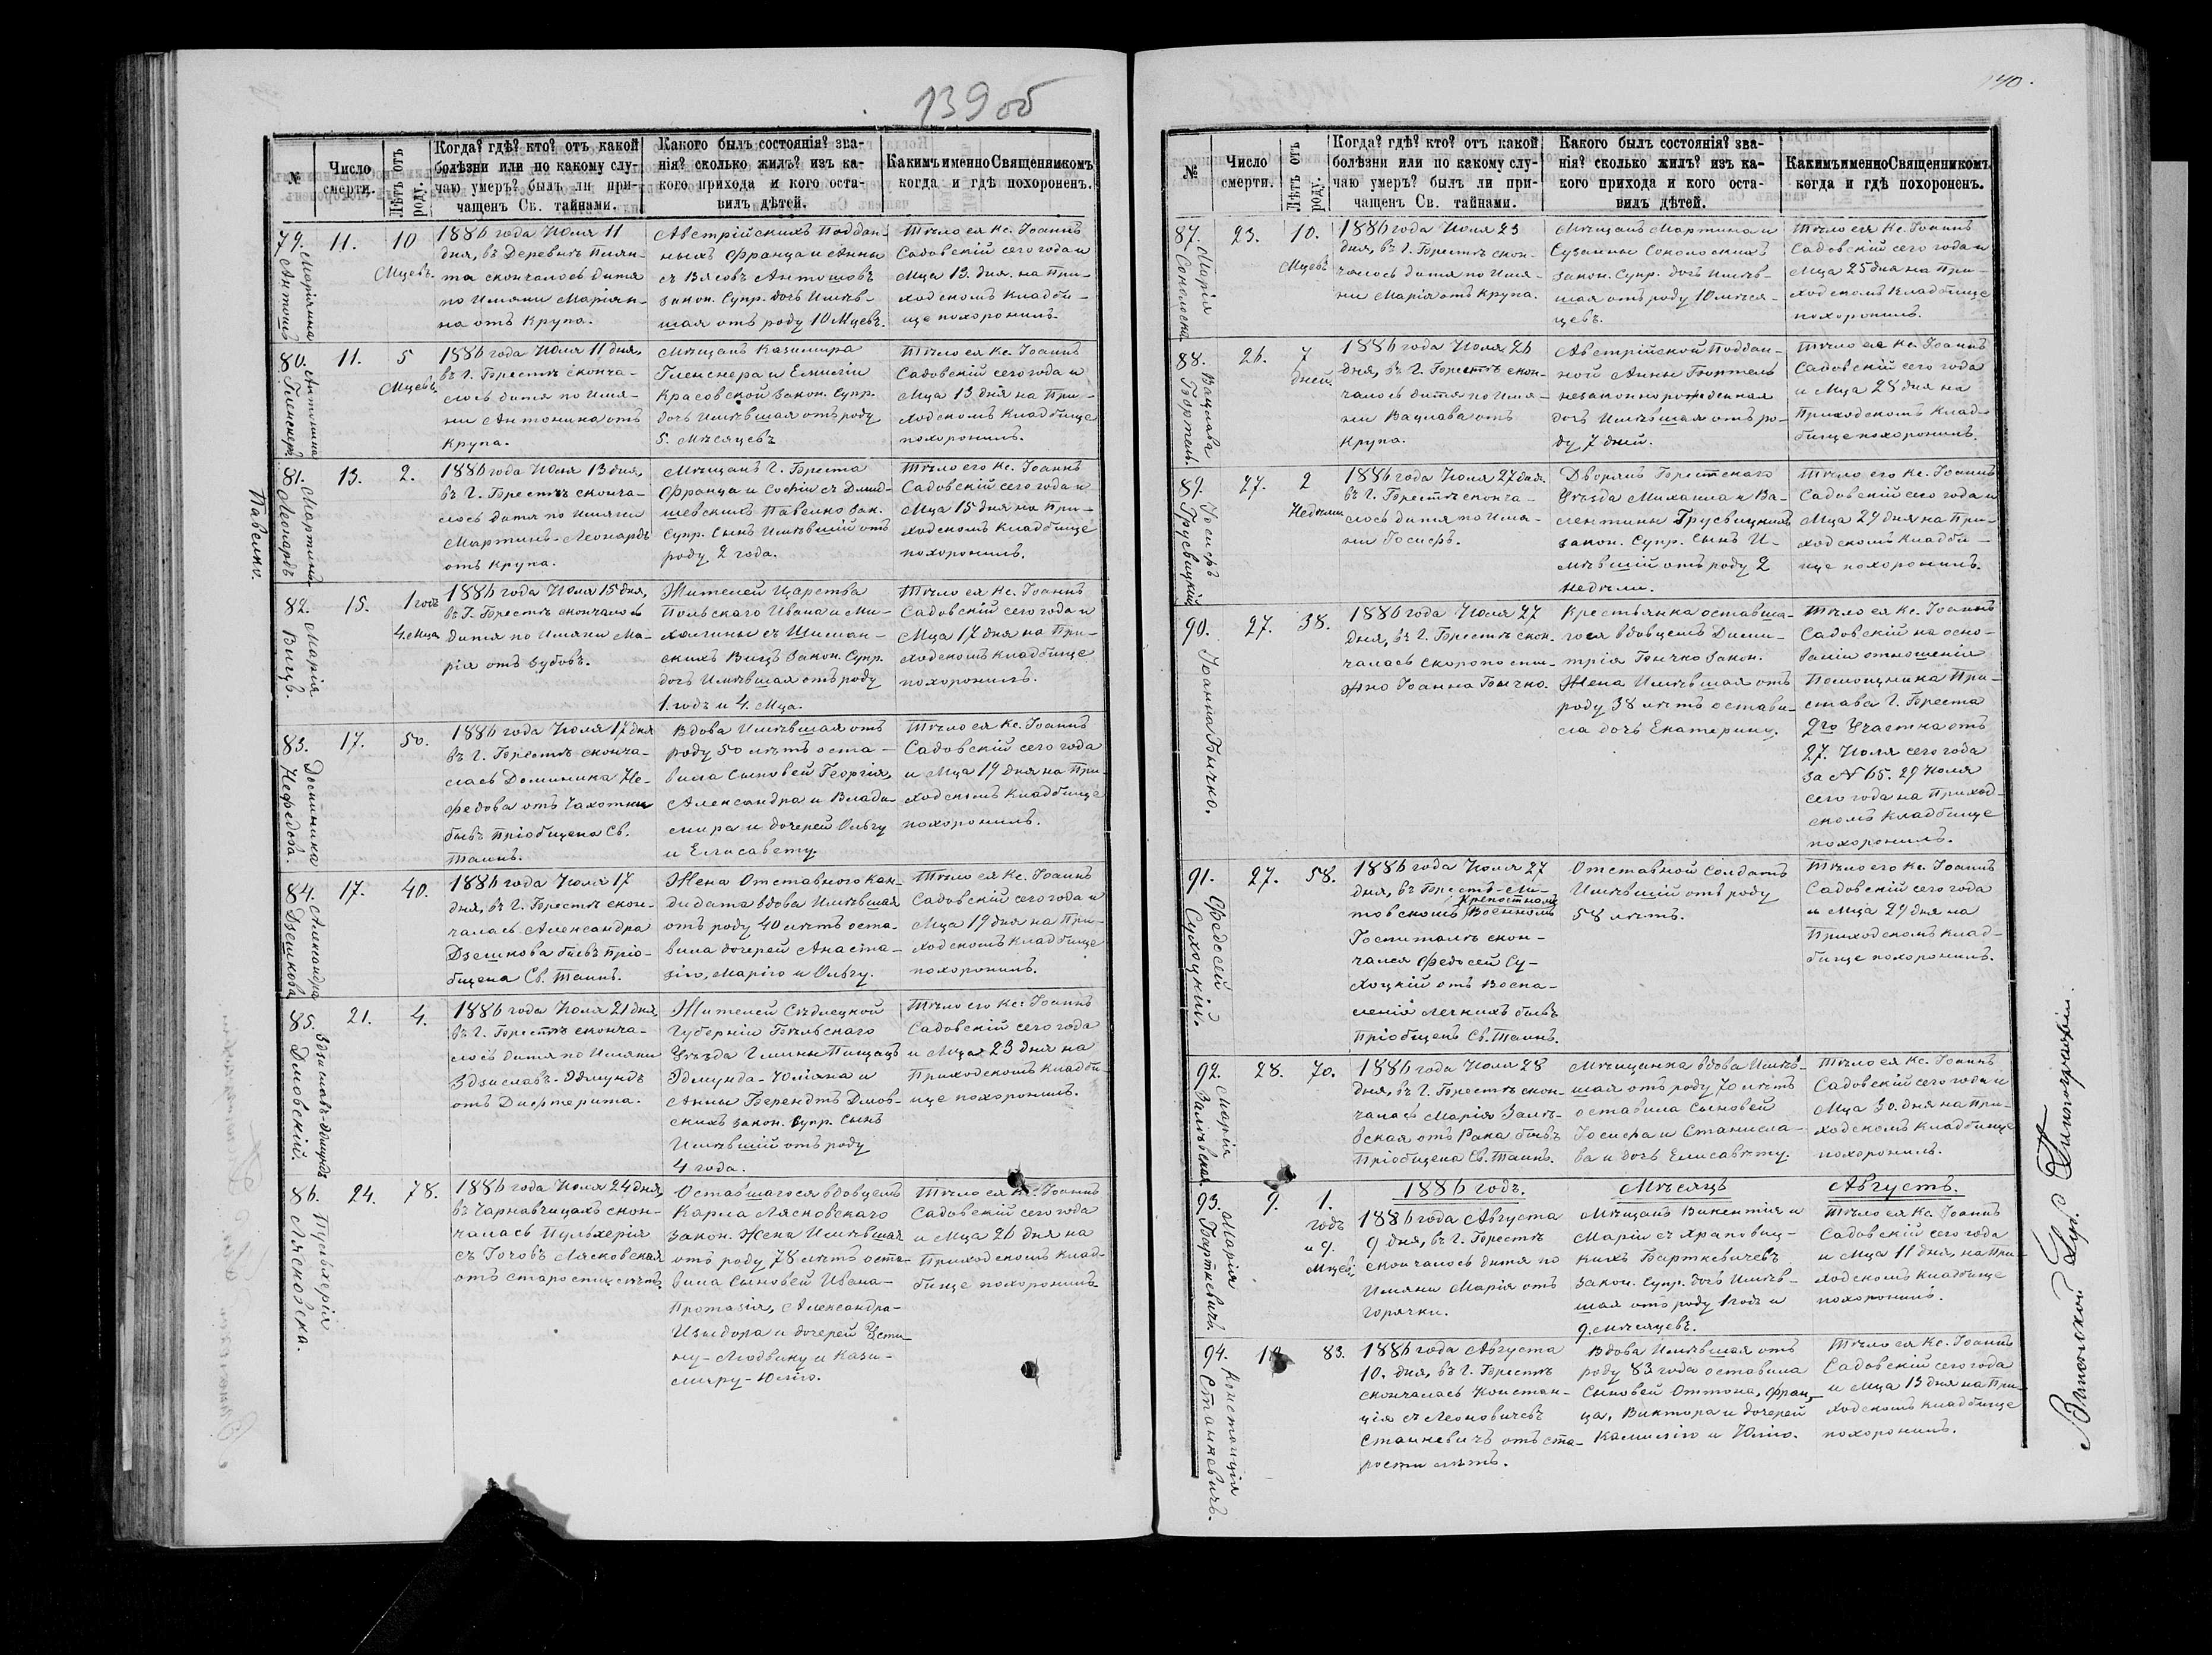 139 об
№
Число смерти.
Лѣтъ отъ роду.
Когда? гдѣ? кто? отъ какой
болѣзни или по какому слу-
чаю умеръ? былъ ли при-
чащенъ Св. тайнами.
Какого былъ состоянія? зва-
нія? сколько жилъ? изъ ка-
кого прихода и кого оста-
вилъ дѣтей.
Какимъ именно Священникомъ
когда и гдѣ похороненъ.
79. Маріянна
Антошъ
11.
10
Мцевъ.
1886 года Июля 11
дня, въ Деревнѣ
скончалось дитя
по Имяни Маріян-
на отъ Крупа.
Австрійскихъ Поддан-
ныхъ Франца и Анны
съ Антошовъ
закон. Супр. дочь Имѣв-
шая отъ роду 10 Мцевъ.
Тѣло ея Кс. Іоаннъ
Садовскій сего года и
Мца 13. дня, на При-
ходскомъ Кладби-
ще похоронилъ.
80. Антонина
Гленснеръ
11.
5
Мцевъ
1886 года Июля 11 дня,
въ Г. Брестѣ сконча-
лось дитя по Имя-
ни Антонина отъ
Крупа.
Мѣщанъ Казимира
Гленснера и Емиліи
Красовской Закон. Супр.
дочь Имѣвшая отъ роду
5. Мѣсяцевъ
Тѣло ея Кс. Іоаннъ
Садовскій сего года и
Мца 13 дня на При-
ходскомъ Кладбище
похоронилъ.
81. Мартинъ
Леонардъ
Павелко.
13.
2.
1886 года Июля 13 дня,
въ Г. Брестѣ сконча-
лось дитя по Имяни
Мартинъ-Леонардъ
отъ Крупа.
Мѣщанъ Г. Бреста
Франца и Софіи съ
Павелко Зак.
Супр. Сынъ Имѣвшій отъ
роду 2 года.
Тѣло его Кс. Іоаннъ
Садовскій сего года и
Мца 15 дня на При-
ходскомъ Кладбище
похоронилъ.
82. Марія
Вицъ.
15.
1 годъ
4. Мца
1886 года Июля 15 дня,
въ Г. Брестѣ скончалось
дитя по Имяни Ма-
рія отъ зубовъ.
Жителей Царства
Польскаго Ивана и Ми-
халины съ Шиман-
скихъ Вицъ Закон. Супр.
дочь Имѣвшая отъ роду
1. годъ и 4. Мца.
Тѣло ея Кс. Іоаннъ
Садовскій сего года и
Мца 17 дня на При-
ходскомъ Кладбище
похоронилъ.
83. Доминика
Нефедова.
17.
50.
1886 года Июля 17 дня
въ Г. Брестѣ сконча-
лась Доминика Не-
федова отъ Чахотки
бывъ пріобщена Св.
Таинъ.
Вдова Имѣвшая отъ
роду 50 лѣтъ оста-
вила Сыновей Георгія,
Александра и Влади-
мира и дочерей Ольгу
и Елисавету.
Тѣло ея Кс. Іоаннъ
Садовскій сего года
и Мца 19 дня на При-
ходскомъ Кладбище
похоронилъ.
84. Александра
Дзешкова
17.
40.
1886 года Июля 17
дня, въ Г. Брестѣ скон-
чалась Александра
Дзешкова бывъ прiо-
бщена Св. Таинъ.
Жена Отставного Кан-
дидата вдова Имѣвшая
отъ роду 40 лѣтъ оста-
вила дочерей Анаста-
зію, Марію и Ольгу.
Тѣло ея Кс. Іоаннъ
Садовскій сего года и
Мца 19 дня на При-
ходскомъ Кладбище
похоронилъ.
85. Здзиславъ-Эдмундъ
Дмовскій.
21.
4.
1886 года Июля 21 дня
въ Г. Брестѣ сконча-
лось дитя по Имяни
Здзиславъ-Эдмундъ
отъ Дифтерита.
Жителей Сѣдлецкой
Губерніи Бѣльскаго
Уѣзда Гмины Пищацъ
Эдмунда-Юліяна и
Анны Берендтъ Дмов-
скихъ закон. Супр. Сынъ
Имѣвшій отъ роду
4 года.
Тѣло его Кс. Іоаннъ
Садовскій сего года
и Мца 23 дня на
Приходскомъ Кладби-
ще похоронилъ.
86. Пульхерія
Лясковска.
24.
78.
1886 года Июля 24 дня,
въ Чернавчицахъ скон-
чалась Пульхерія
съ Лясковская
отъ старости лѣтъ.
Оставшагося вдовцемъ
Карла Лясковскаго
закон. Жена Имѣвшая
отъ роду 78 лѣтъ оста-
вила Сыновей Ивана-
Протазія, Александра-
Изыдора и дочерей Усти-
ну-Людвику и Кази-
миру-Юлію.
Тѣло ея Кс. Іоаннъ
Садовскій сего года
и Мца 26 дня на
Приходскомъ Клад-
бище похоронилъ
140.
№
Число смерти.
Лѣтъ отъ роду.
Когда? гдѣ? кто? отъ какой
болѣзни или по какому слу-
чаю умеръ? былъ ли при-
чащенъ Св. тайнами.
Какого былъ состоянія? зва-
нія? сколько жилъ? изъ ка-
кого прихода и кого оста-
вилъ дѣтей.
Какимъ именно Священникомъ
когда и гдѣ похороненъ.
87. Марія
Соколоска
23.
10.
Мцевъ
1886 года Июля 23
дня, въ Г. Брестѣ скон-
чалось дитя по Имя-
ни Марія отъ Крупа.
Мѣщанъ Мартина и
Сузанны Соколоскихъ
закон. Супр. дочь Имѣв-
шая отъ роду 10 мѣся-
цевъ.
Тѣло ея Кс. Іоаннъ
Садовскій сего года и
Мца 25 дня на При-
ходскомъ Кладбище
похоронилъ.
88. Вацлава
Бортель.
26.
7
дней.
1886 года Июля 26
дня, въ Г. Брестѣ скон-
чалось дитя по Имя-
ни Вацлава отъ
Крупа.
Австрійской Поддан-
ной Анны Бортель
незаконнорожденная
дочь Имѣвшая отъ ро-
ду 7 дней.
Тѣло ея Кс. Іоаннъ
Садовскій сего года
и Мца 28 дня на
Приходскомъ Клад-
бище похоронилъ.
89. Іосифъ
Грусвицкій
27.
2
Недѣли
1886 года Июля 27 дня
въ Г. Брестѣ сконча-
лось дитя по Имя-
ни Іосифъ.
Дворянъ Брестскаго
Уѣзда Михаила и Ва-
лентины Грусвицкихъ
закон. Супр. Сынъ И-
мѣвшій отъ роду 2
недѣли.
Тѣло его Кс. Іоаннъ
Садовскій сего года и
Мца 29 дня на При-
ходскомъ Кладби-
ще похоронилъ.
90. Іоанна Бычко.
27.
38.
1886 года Июля 27
дня, въ Г. Брестѣ скон-
чалась скоропостиж-
но Іоанна Бычко.
Крестьянка оставша-
гося вдовцемъ Дими-
трія Бычко закон.
Жена Имѣвшая отъ
роду 38 лѣтъ остави-
ла дочь Екатерину.
Тѣло ея Кс. Іоаннъ
Садовскій на осно-
ваніи отношенія
Помощника При-
става Г. Бреста
2го Участка отъ
27. Июля сего года
за № 65. 29 Июля
сего года на Приход-
скомъ Кладбище
похоронилъ.
91. Федосей
Сухоцкій.
27.
58.
1886 года Июля 27
дня, въ Брестъ-Ли-
товскомъ Крепостномъ Военномъ
Госпиталѣ скон-
чался Федосей Су-
хоцкій отъ Воспа-
ленія легкихъ бывъ
Пріобщенъ Св. Таинъ.
Отставной Солдатъ
Имѣвшій отъ роду
58 лѣтъ.
Тѣло его Кс. Іоаннъ
Садовскій сего года
и Мца 29 дня на
Приходскомъ Клад-
бище похоронилъ.
92. Марія
Залѣвская.
28.
70.
1886 года Июля 28
дня, въ Г. Брестѣ скон-
чалась Марія Залѣ-
вская отъ Рака бывъ
Пріобщена Св. Таинъ.
Мѣщанка вдова Имѣв-
шая отъ роду 70 лѣтъ
оставила Сыновей
Іосифа и Станисла-
ва и дочь Елисавѣту.
Тѣло ея Кс. Іоаннъ
Садовскій сего года и
Мца 30. дня на При-
ходскомъ Кладбище
похоронилъ.
1886 годъ. Мѣсяцъ Августъ.
93. Марія
Барткевичъ.
9.
1.
годъ
и 9.
Мцев.
1886 года Августа
9 дня, въ Г. Брестѣ
скончалось дитя по
Имяни Марія отъ
горячки.
Мѣщанъ Викентія и
Маріи съ Храповиц-
кихъ Барткевичевъ
закон. Супр. дочь Имѣв-
шая отъ роду 1 годъ и
9. мѣсяцевъ.
Тѣло ея Кс. Іоаннъ
Садовскій сего года
и Мца 11 дня, на При-
ходскомъ Кладбище
похоронилъ.
94. Констанція
Станкевичъ.
10
83.
1886 года Августа
10. дня, въ Г. Брестѣ
скончалась Констан-
ція съ Леоновичевъ
Станкевичъ отъ ста-
рости лѣтъ.
Вдова Имѣвшая отъ
роду 83 года оставила
Сыновей Оттона, Фран-
ца, Виктора и дочерей
Камилію и Юлію.
Тѣло ея Кс. Іоаннъ
Садовскій сего года
и Мца 13 дня на При-
ходскомъ Кладбище
похоронилъ.